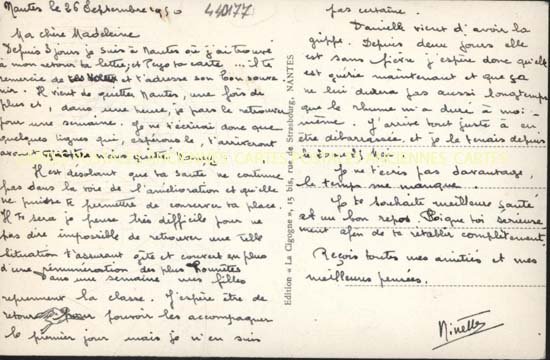 Nantes le 26 Septembre 1950
440177
Ma chère Madeleine
Depuis 3 jours je suis à Nantes où j'ai trouvé
à mon retour ta lettre, et Puyo ta carte... il te
remercie de et t'adresse son bon souve-
nir. Il vient de quitter Nantes, une fois de
plus et, dans une heure, je pars le retrouver
pour une semaine. Je ne t'écrirai donc que
quelques lignes qui, espérons le, t'arriveront
avant
Il est désolant que ta santé ne continue
pas dans la voie de l'amélioration et qu'elle
ne puisse te permettre de conserver ta place.
Il te sera je pense très difficile pour ne
pas dire impossible de retrouver une telle
situation t'assurant gîte et couvert en plus
d'une rémunération des plus honnêtes
Dans une semaine mes filles
reprennent la classe. J'espère être de
retour pour pouvoir les accompagner
le premier jour mais je n'en suis
pas certaine.
Danielle vient d'avoir la
grippe. Depuis deux jours elle
est sans fièvre j'espère donc qu'elle
est guérie maintenant et que ça
ne lui durera pas aussi longtemps
que le rhume m'a duré à moi-
même. J'arrive tout juste à en
être débarrassée et je le tenais depuis
Je ne t'écris pas davantage,
le temps me manque
Je te souhaite meilleure santé
et un bon repos Soigne toi sérieuse
ment afin de te rétablir complètement
Reçois toutes mes amitiés et mes
meilleures pensées.
Ninette
Edition « La Cigogne », 15 bis, rue de Strasbourg, NANTES
CARTES POSTALES ANCIENNES CARTES